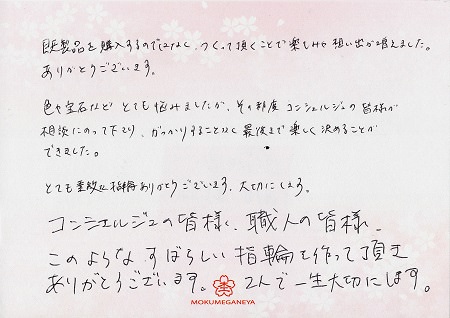 既製品を購入するのではなく、つくって頂くことで楽しみや想い出が増えました。
ありがとうございます。
色や宝石など とても悩みましたが、その都度 コンシェルジュの皆様が
相談にのって下さり、がっかりすることなく 最後まで楽しく決めることが
できました。
とても素敵な指輪ありがとうございます。大切にします。
コンシェルジュの皆様、職人の皆様、
このような すばらしい 指輪を作って頂き
ありがとうございます。 2人で一生大切にします。
MOKUMEGANEYA